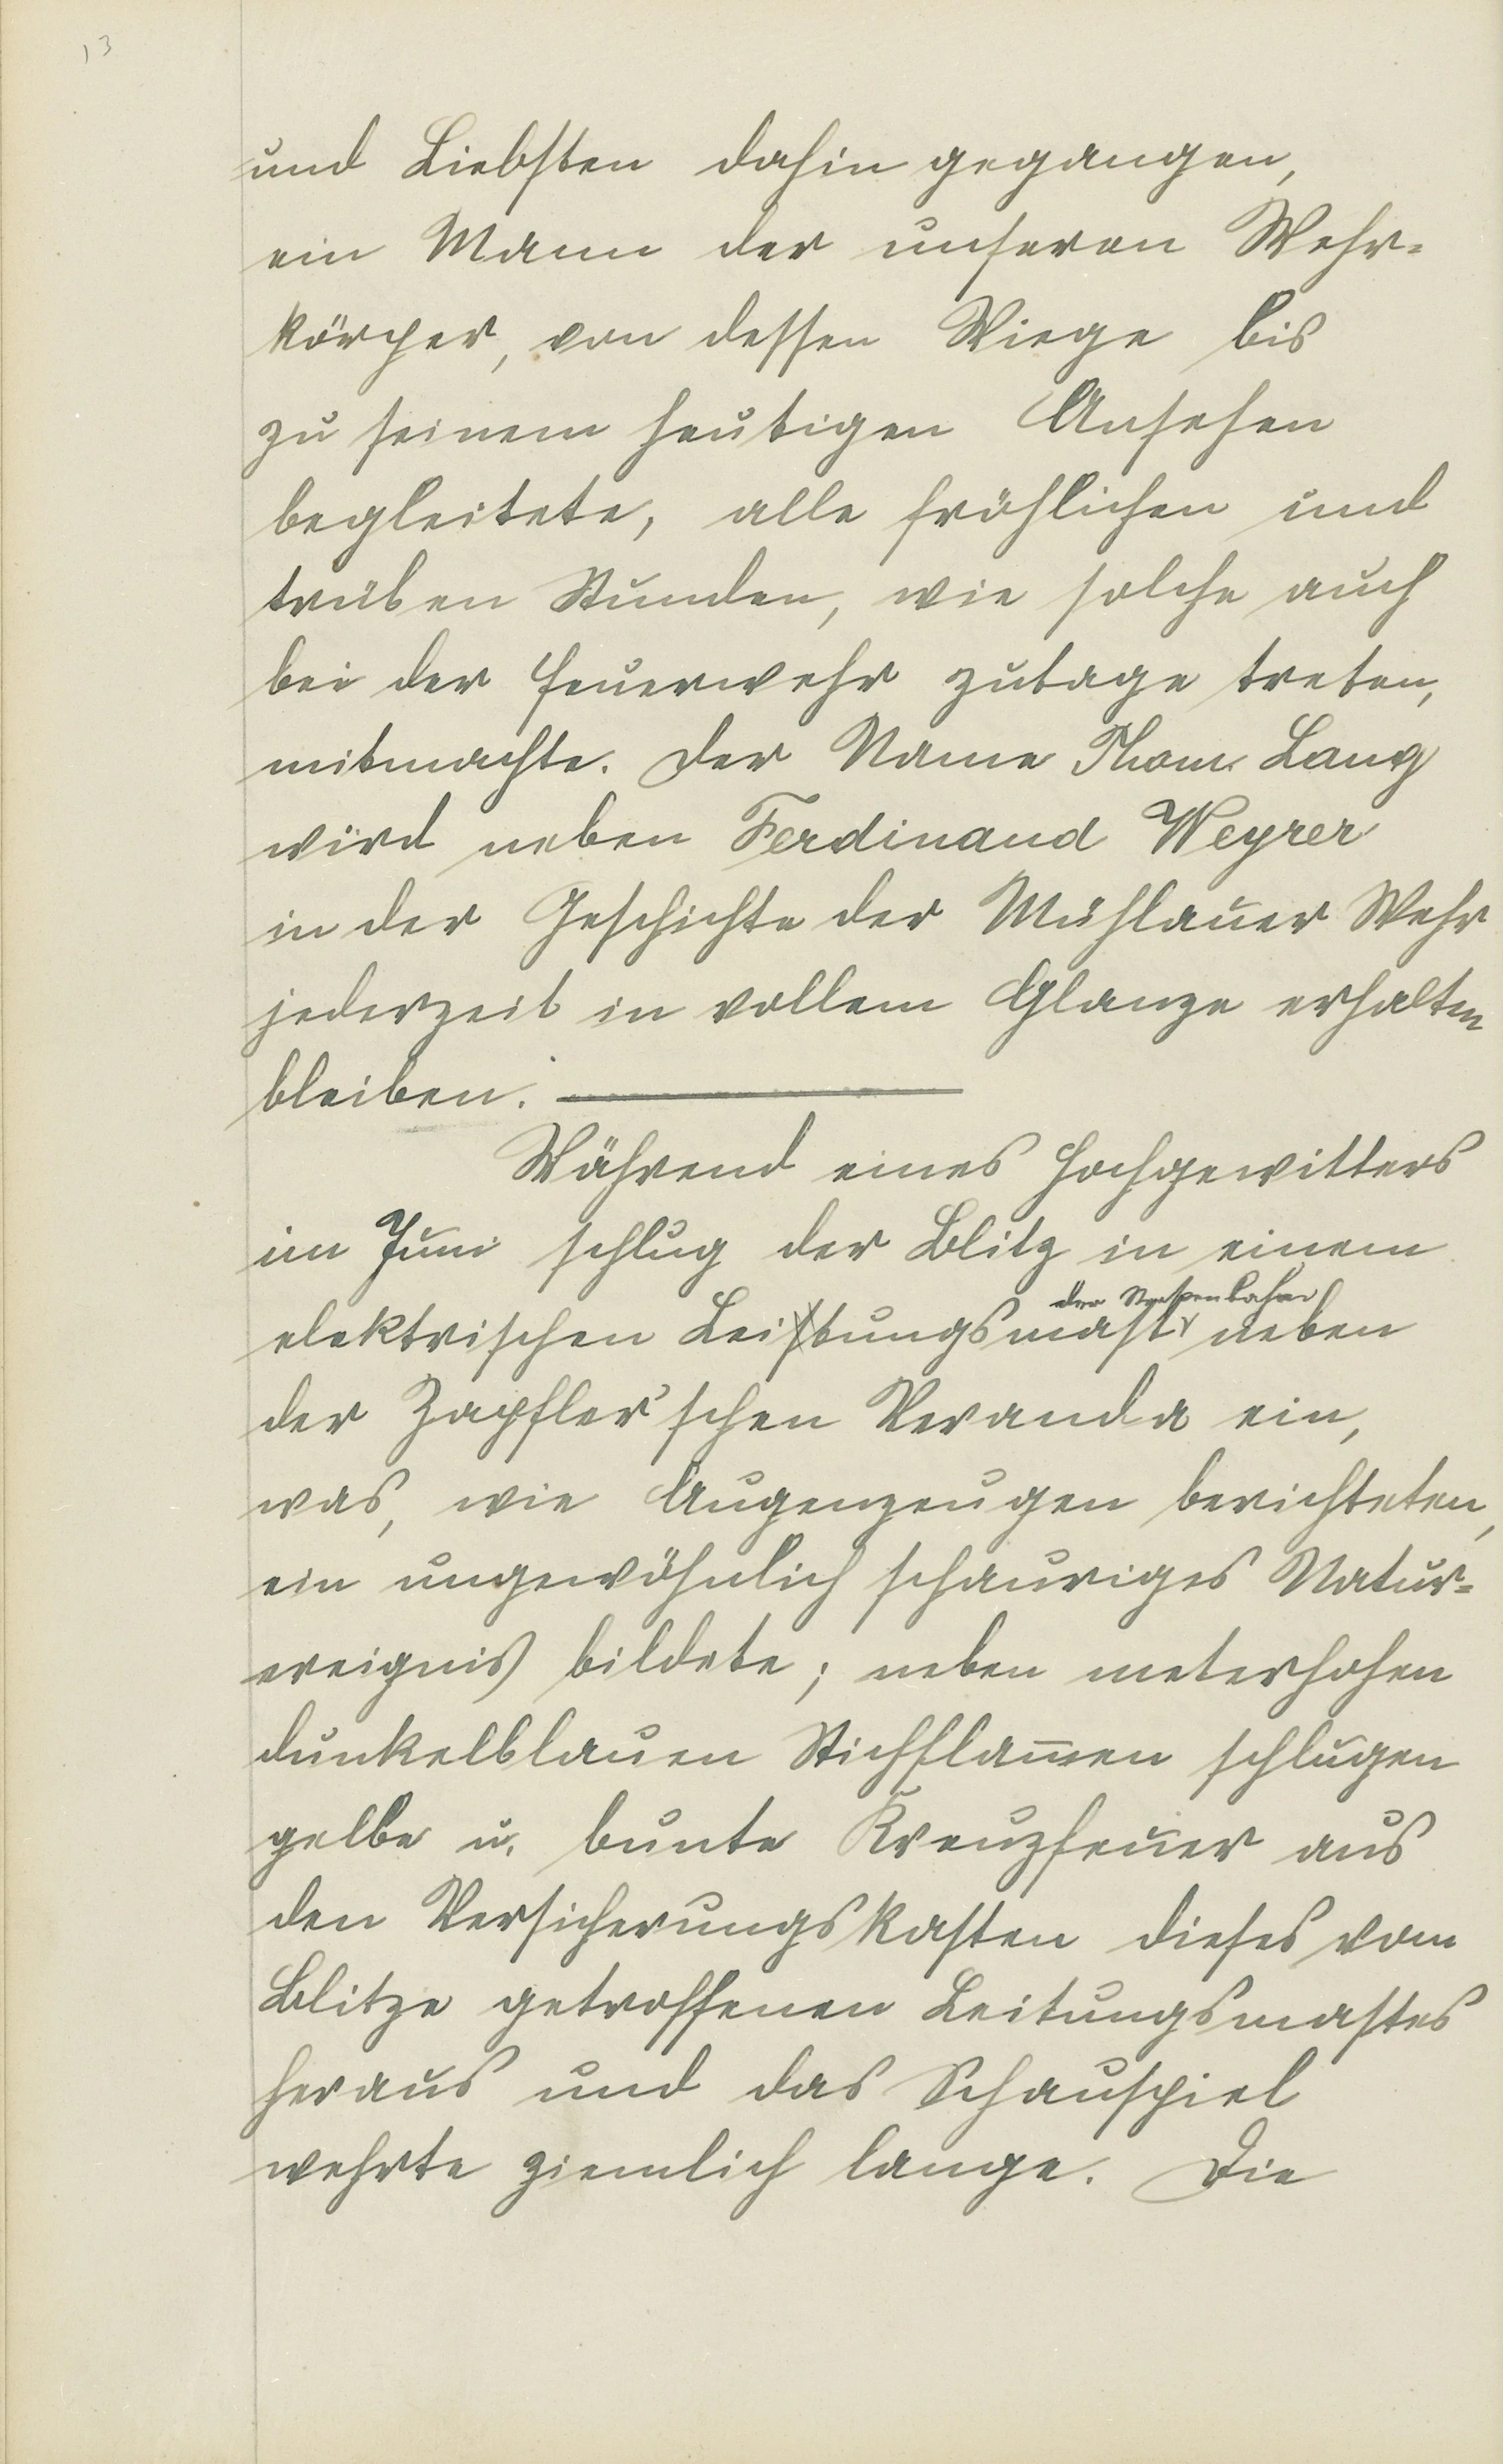 13
und Liebsten dahin gegangen,
ein Mann der unseren Wehr-
körper, von dessen Wiege bis
zu seinem heutigen Ansehen
begleitete, alle fröhlichen und
trüben Stunden, wie solche auch
bei der Feuerwehr zutage treten,
mitmachte. Der Name Thom. Lang
wird neben Ferdinand Weyrer
in der Geschichte der Mühlauer Wehr
jederzeit in vollem Glanze erhalten
bleiben.
Während eines Hochgewitters
im Juni schlug der Blitz in einem
der Strassenbahn
elektrischen Leitungsmast neben
der Zapfler'schen Veranda ein,
was, wie Augenzeugen berichteten,
ein ungewöhnlich schauriges Natur-
ereignis bildete; neben meterhohen
dunkelblauen Stichflam̅en schlugen
gelbe u. bunte Kreuzfeuer aus
den Versicherungskasten dieses vom
Blitze getroffenen Leitungsmastes
heraus und das Schauspiel
wehrte ziemlich lange. Die